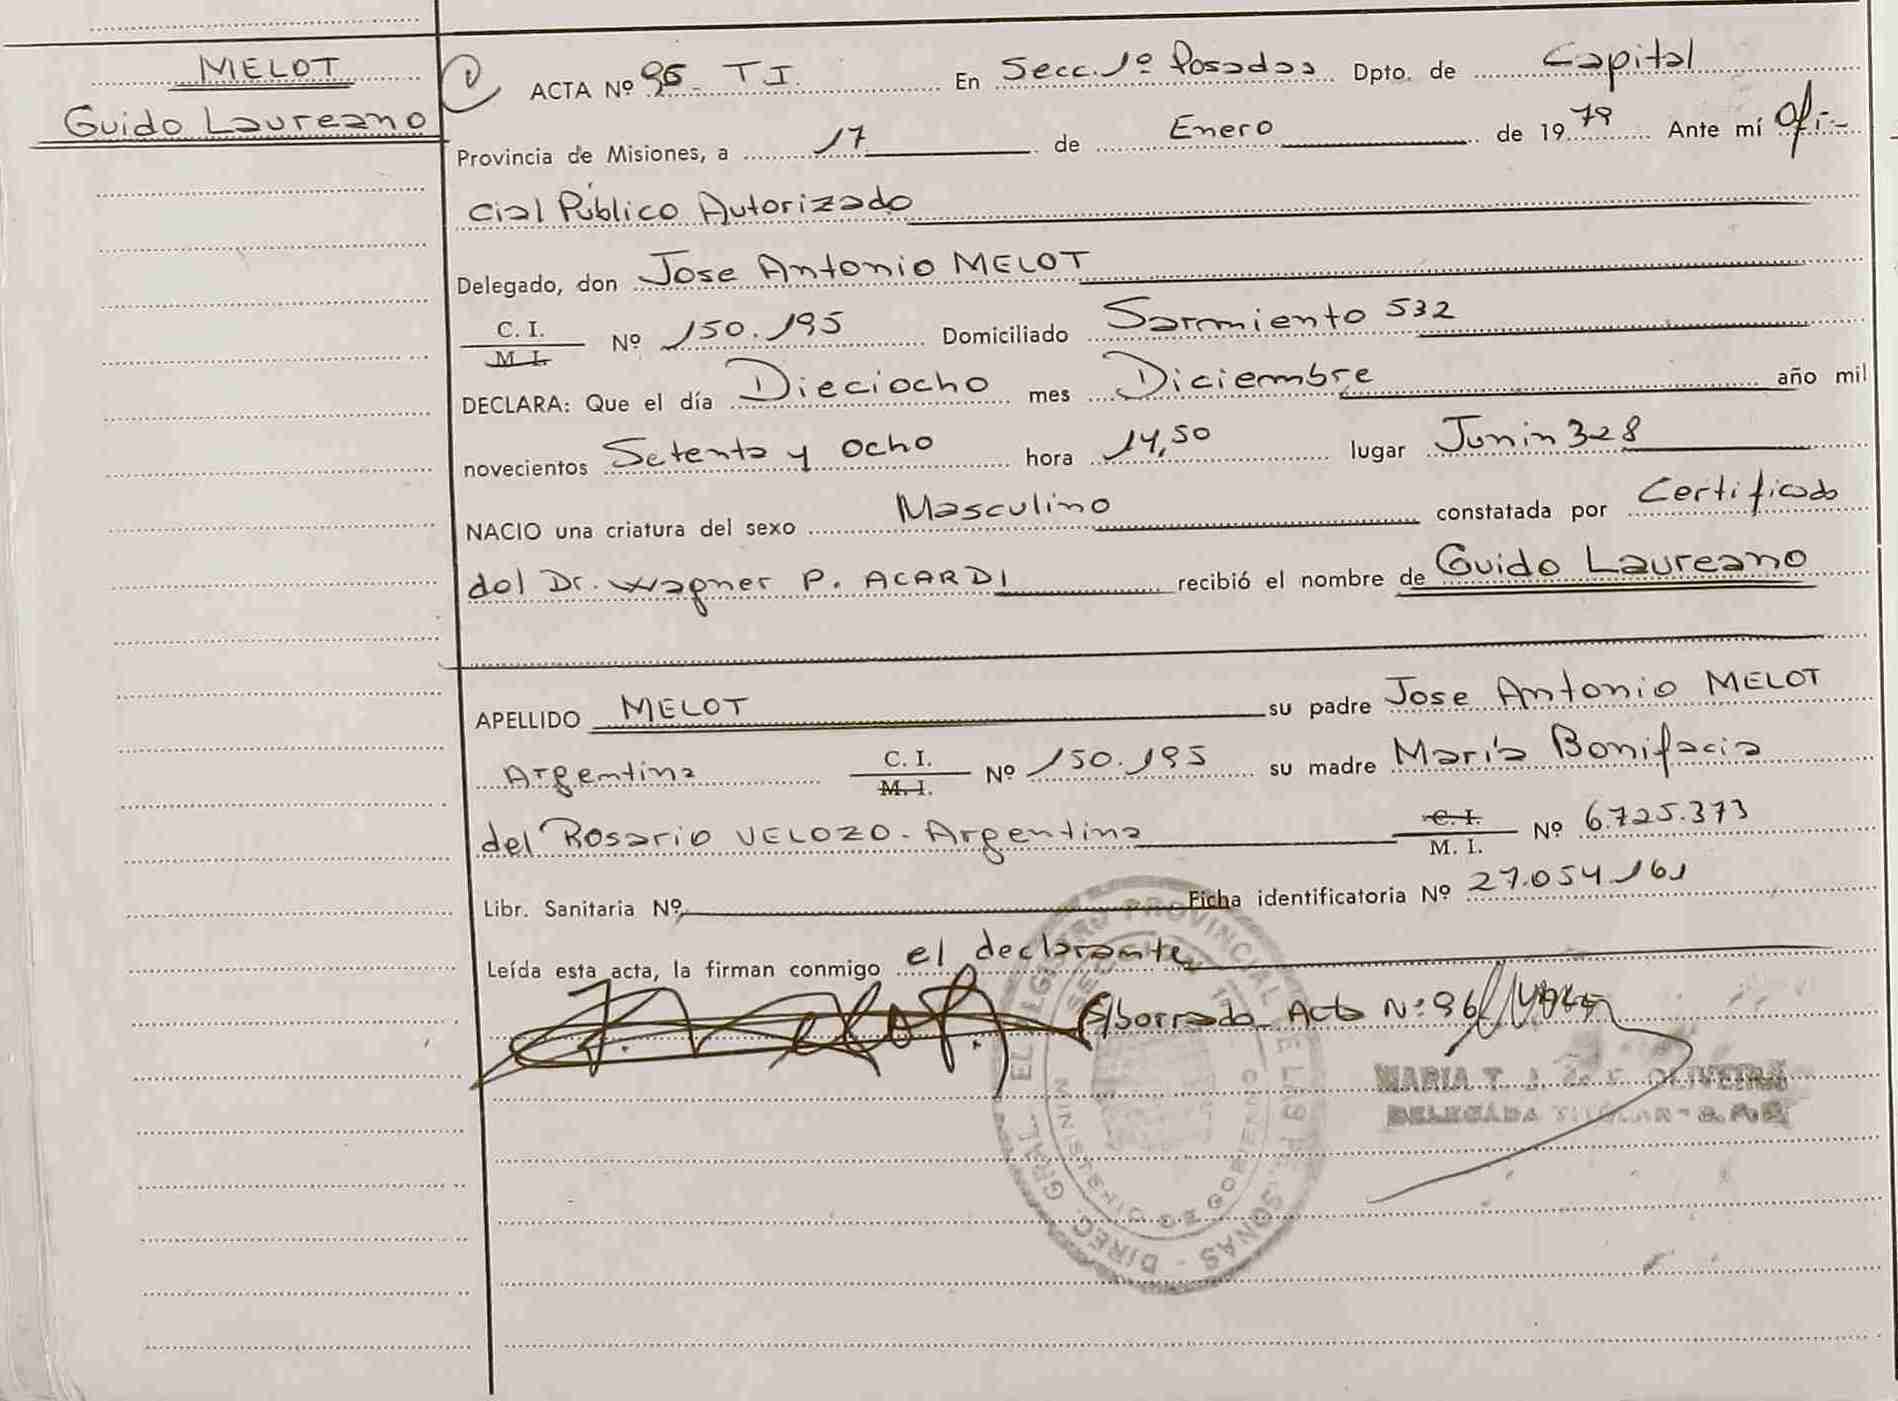 MELOT
Guido Laureano
ACTA Nº 96 - T I. En Secc. 1º Posadas Dpto. de Capital
Provincia de Misiones, a 17 de Enero de 1979 Ante mí Ofi-
cial Público Autorizado
Delegado, don Jose Antonio MELOT
C. I.
M. I. Nº 150.195 Domiciliado Sarmiento 532
DECLARA: Que el día Dieciocho mes Diciembre año mil
novecientos Setenta y ocho hora 14,50 lugar Junin 328
NACIO una criatura del sexo Masculino constatada por Certificado
del Dr. Wagner P. ACARDI recibió el nombre de Guido Laureano
APELLIDO MELOT su padre Jose Antonio MELOT
Argentina C. I. M. I. Nº 150.195 su madre María Bonifacia
del Rosario VELOZO - Argentina C. I. M. I. Nº 6.725.373
Libr. Sanitaria Nº Ficha identificatoria Nº 27.054.161
Leída esta acta, la firman conmigo el declarante
S/borrado Acta Nº: 96
MARIA T. J. OLIVEIRA
DELEGADA TITULAR
DIREC. GRAL. DEL REGISTRO PROVINCIAL DE LAS PERSONAS
MINISTERIO DE GOBIERNO